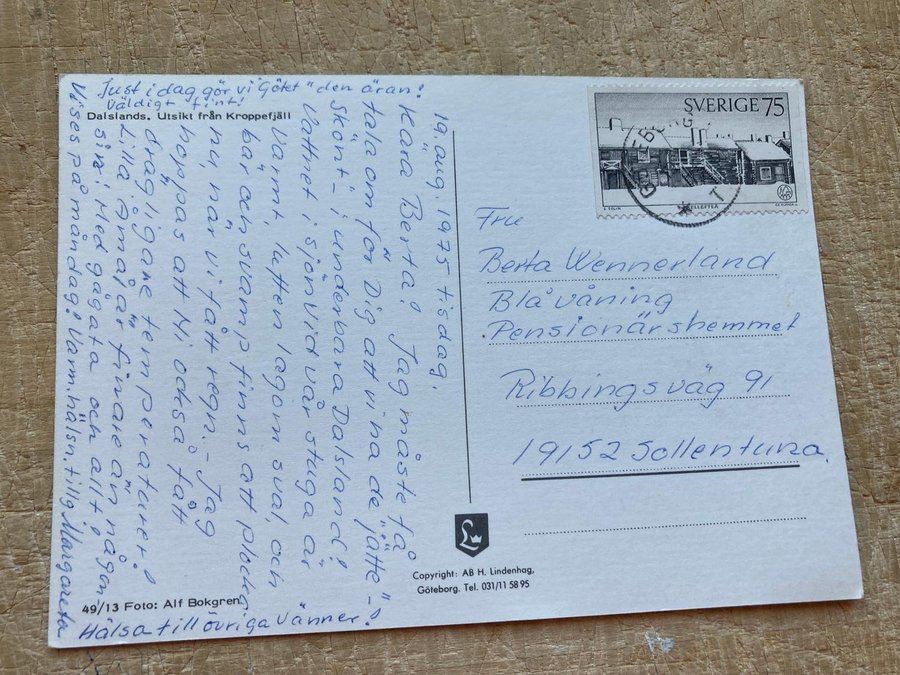 Just i dag gör vi "Götet" den äran!
Väldigt fint!
Dalslands. Utsikt från Kroppefjäll
19. aug. 1975 tisdag.
Kära Berta! Jag måste få
tala om för Dig att vi ha de jätte-
skönt i underbara Dalsland!
Vattnet i sjön vid vår stuga är
varmt luften lagom sval, och
bär och svamp finns att plocka
nu, när vi fått regn. - Jag
hoppas att Ni också fått
drägligare temperaturer!
Lilla Åmål är finare än någon-
sin: Med gågata och allt!
Vi ses på måndag! Varm. hälsn. tillg Margareta
Hälsa till övriga vänner!
49/13 Foto: Alf Bokgren
SVERIGE 75
SKELLEFTEÅ
Fru
Berta Wennerland
Blå våning
Pensionärshemmet
Ribbingsväg 91
19152 Sollentuna.
L
Copyright: AB H. Lindenhag,
Göteborg. Tel. 031/11 58 95